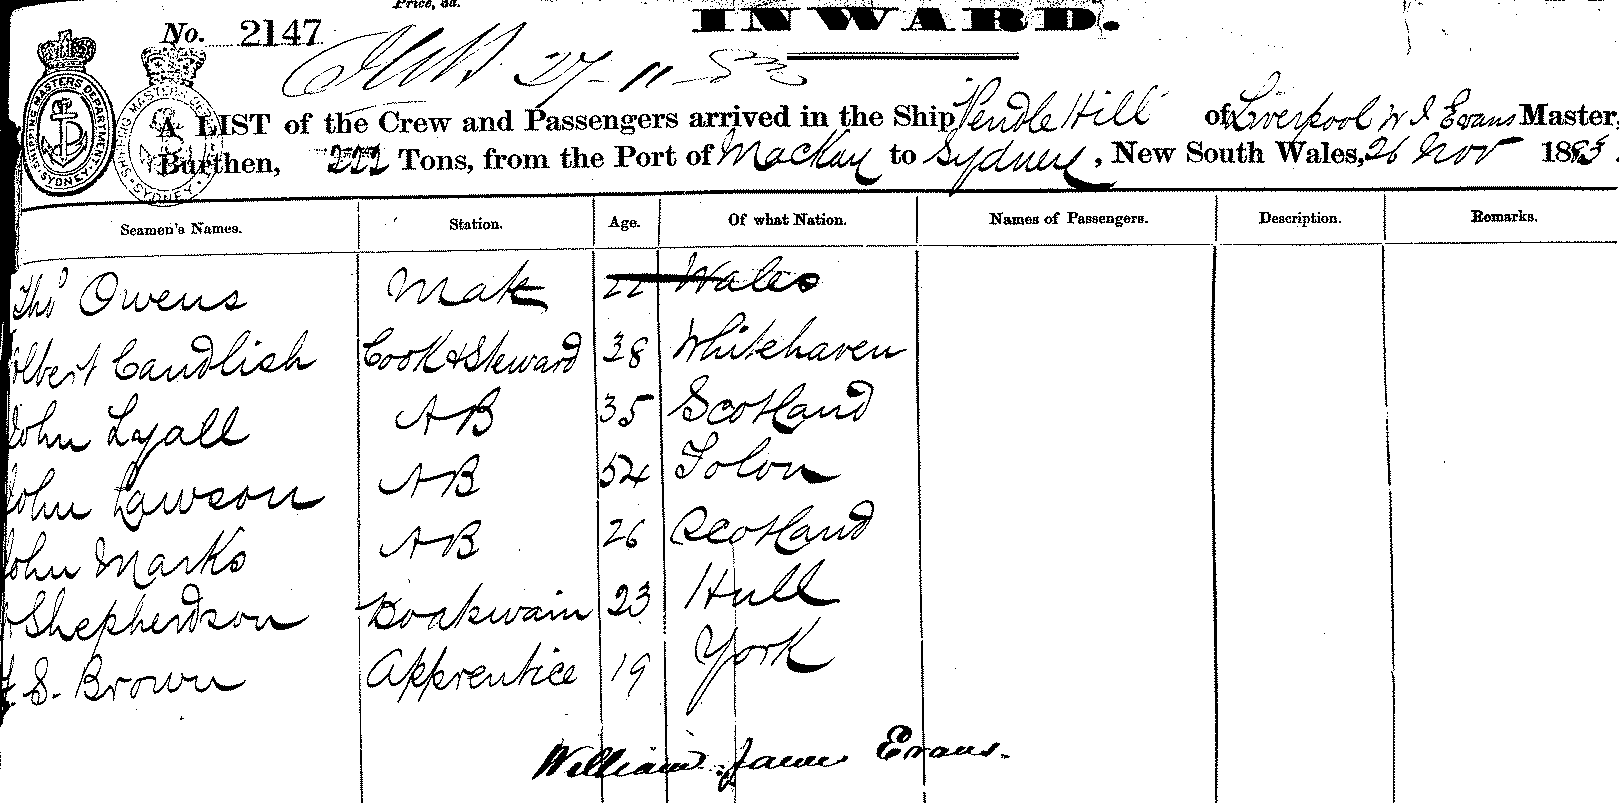 Price, 3d.
INWARD.
No. 2147
27-11-83
A LIST of the Crew and Passengers arrived in the Ship Pendle Hill of Liverpool W J Evans Master,
Burthen, 222 Tons, from the Port of Mackay to Sydney, New South Wales, 26 Nov 1883.
SHIPPING MASTERS DEPARTMENT
SYDNEY
Seamen's Names. Station. Age. Of what Nation. Names of Passengers. Description. Remarks.
Thos Owens Mate 22 Wales
Candlish Cook & Steward 38 Whitehaven
John Lyall AB 35 Scotland
John Lawson AB 54
John Marks AB 26 Scotland
Shepherdson Boatswain 23 Hull
S. Brown Apprentice 19 York
William Evans.